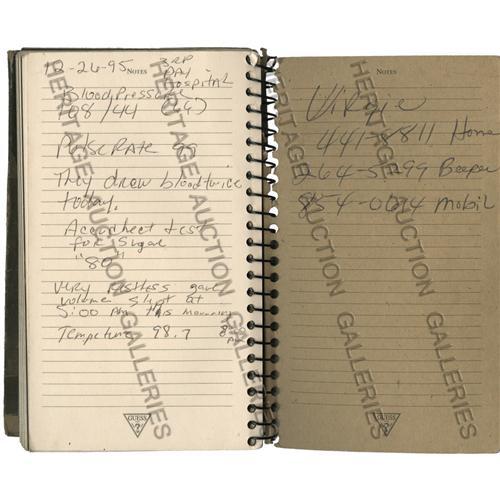 12-26-95 NOTES 3RD
DAY
Hospital
Blood Pressure
108/44
Pulse RATE
They drew blood twice
today.
Accucheck test
for Sugar
"80"
Very restless gave
volume slept at
5:00 AM this morning
Tempeture 98.7
GUESS
?
NOTES
Virgie
441-8811 Home
264-5799 Beeper
854-0074 Mobil
GUESS
?
HERITAGE AUCTION GALLERIES
HERITAGE AUCTION GALLERIES
HERITAGE AUCTION GALLERIES
HERITAGE AUCTION GALLERIES